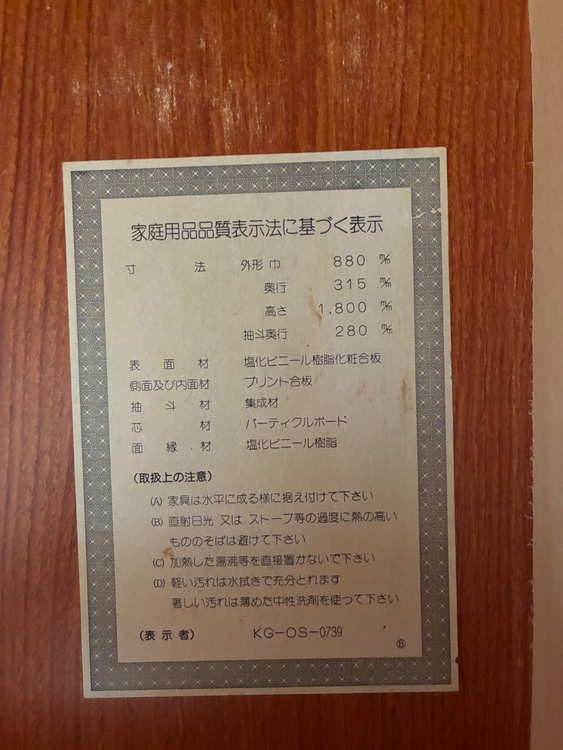 家庭用品品質表示法に基づく表示
寸 法 外形 巾 880 ㎜
奥行 315 ㎜
高さ 1,800 ㎜
抽斗奥行 280 ㎜
表面材 塩化ビニール樹脂化粧合板
側面及び内面材 プリント合板
抽斗材 集成材
芯材 パーティクルボード
面縁材 塩化ビニール樹脂
(取扱上の注意)
(A) 家具は水平に成る様に据え付けて下さい
(B) 直射日光 又は ストーブ等の過度に熱の高い
もののそばは避けて下さい
(C) 加熱した湯沸等を直接置かないで下さい
(D) 軽い汚れは水拭きで充分とれます
著しい汚れは薄めた中性洗剤を使って下さい
(表示者) KG-OS-0739
Ⓑ